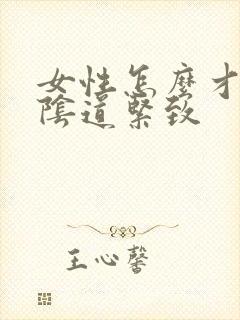 女性怎麼才
陰道緊致
王心馨